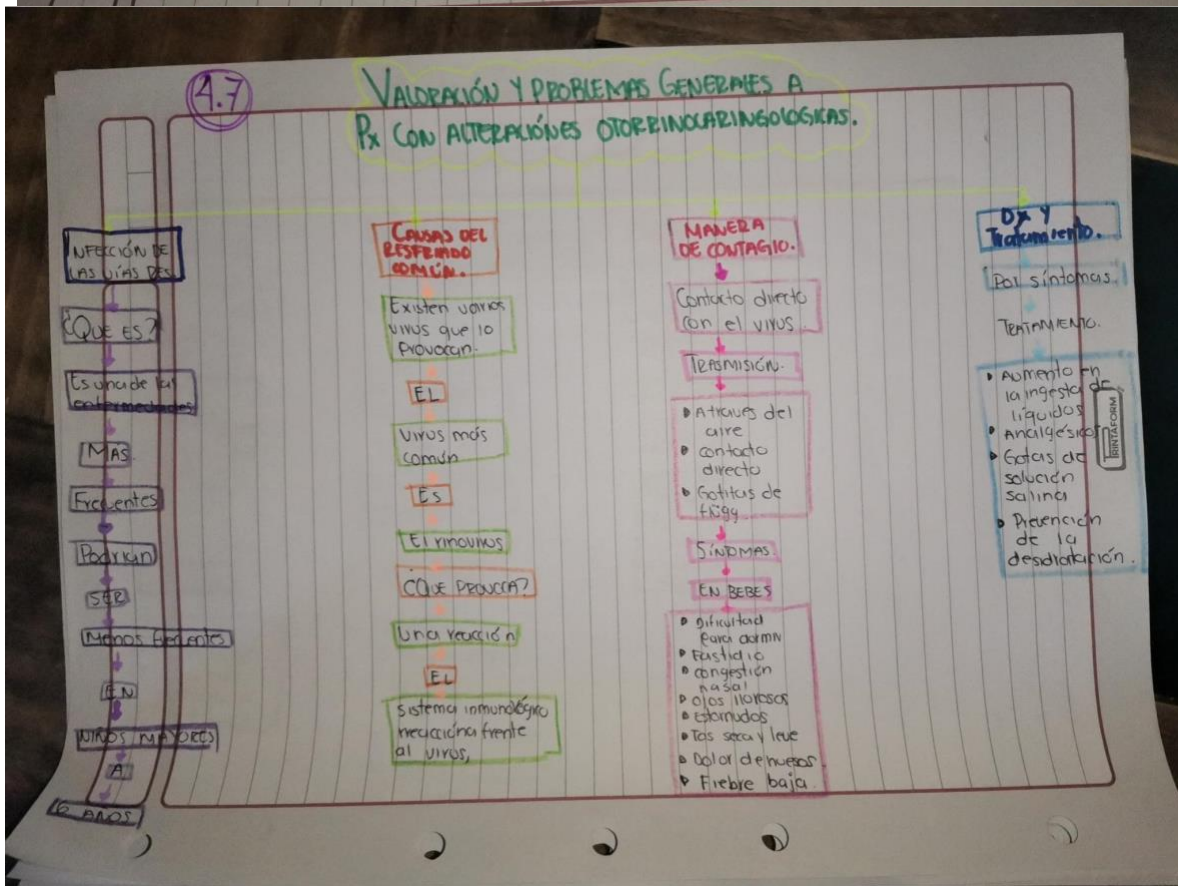 4.7
VALORACIÓN Y PROBLEMAS GENERALES A
Px CON ALTERACIÓNES OTORRINOLARINGOLOGICAS.
INFECCIÓN DE
LAS VÍAS RES
¿QUE ES?
Es una de las
enfermedades
MAS
Frecuentes
Podrian
SER
Menos frecuentes
EN
NIÑOS MAYORES
A
6 AÑOS
CAUSAS DEL
RESFRIADO
COMÚN.
Existen varios
virus que lo
provocan.
EL
Virus más
común
Es
El rinovirus
¿QUE PROVOCA?
Una reacción
EL
sistema inmunológico
reacciona frente
al virus,
MANERA
DE CONTAGIO.
Contacto directo
con el virus
TRASMISIÓN.
Atraves del
aire
contacto
directo
Gotitas de
flügg
SÍNTOMAS.
EN BEBES
Dificultad
para dormir
Fastidio
congestión
nasal
Ojos llorosos
Estornudos
Tos seca y leve
Dolor de huesos
Fiebre baja.
Dx Y
Tratamiento.
Por síntomas.
TRATAMIENTO.
Aumento en
la ingesta de
líquidos
Analgésicos
Gotas de
solución
salina
Prevención
de la
desidratación.
PRINTAFORM